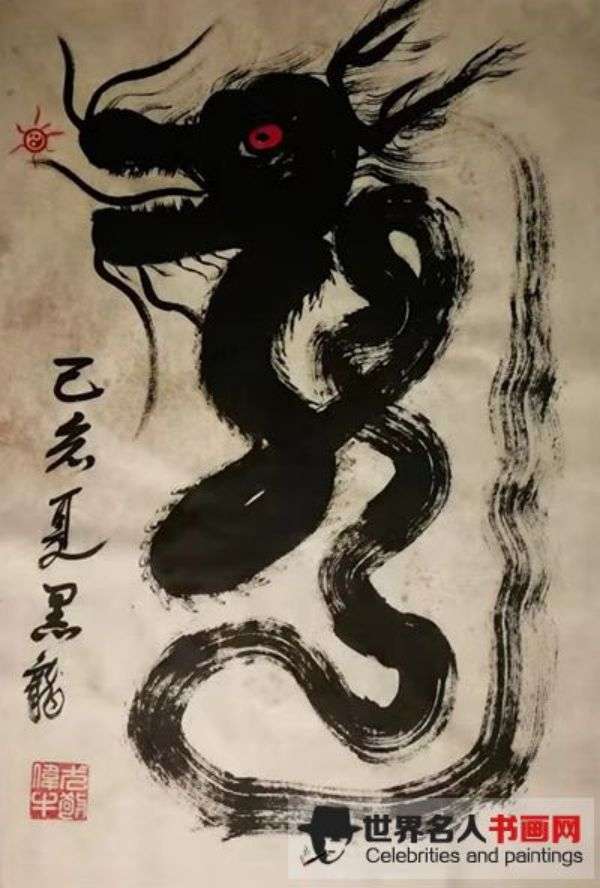 己亥夏黑龍
世界名人书画网
Celebrities and paintings